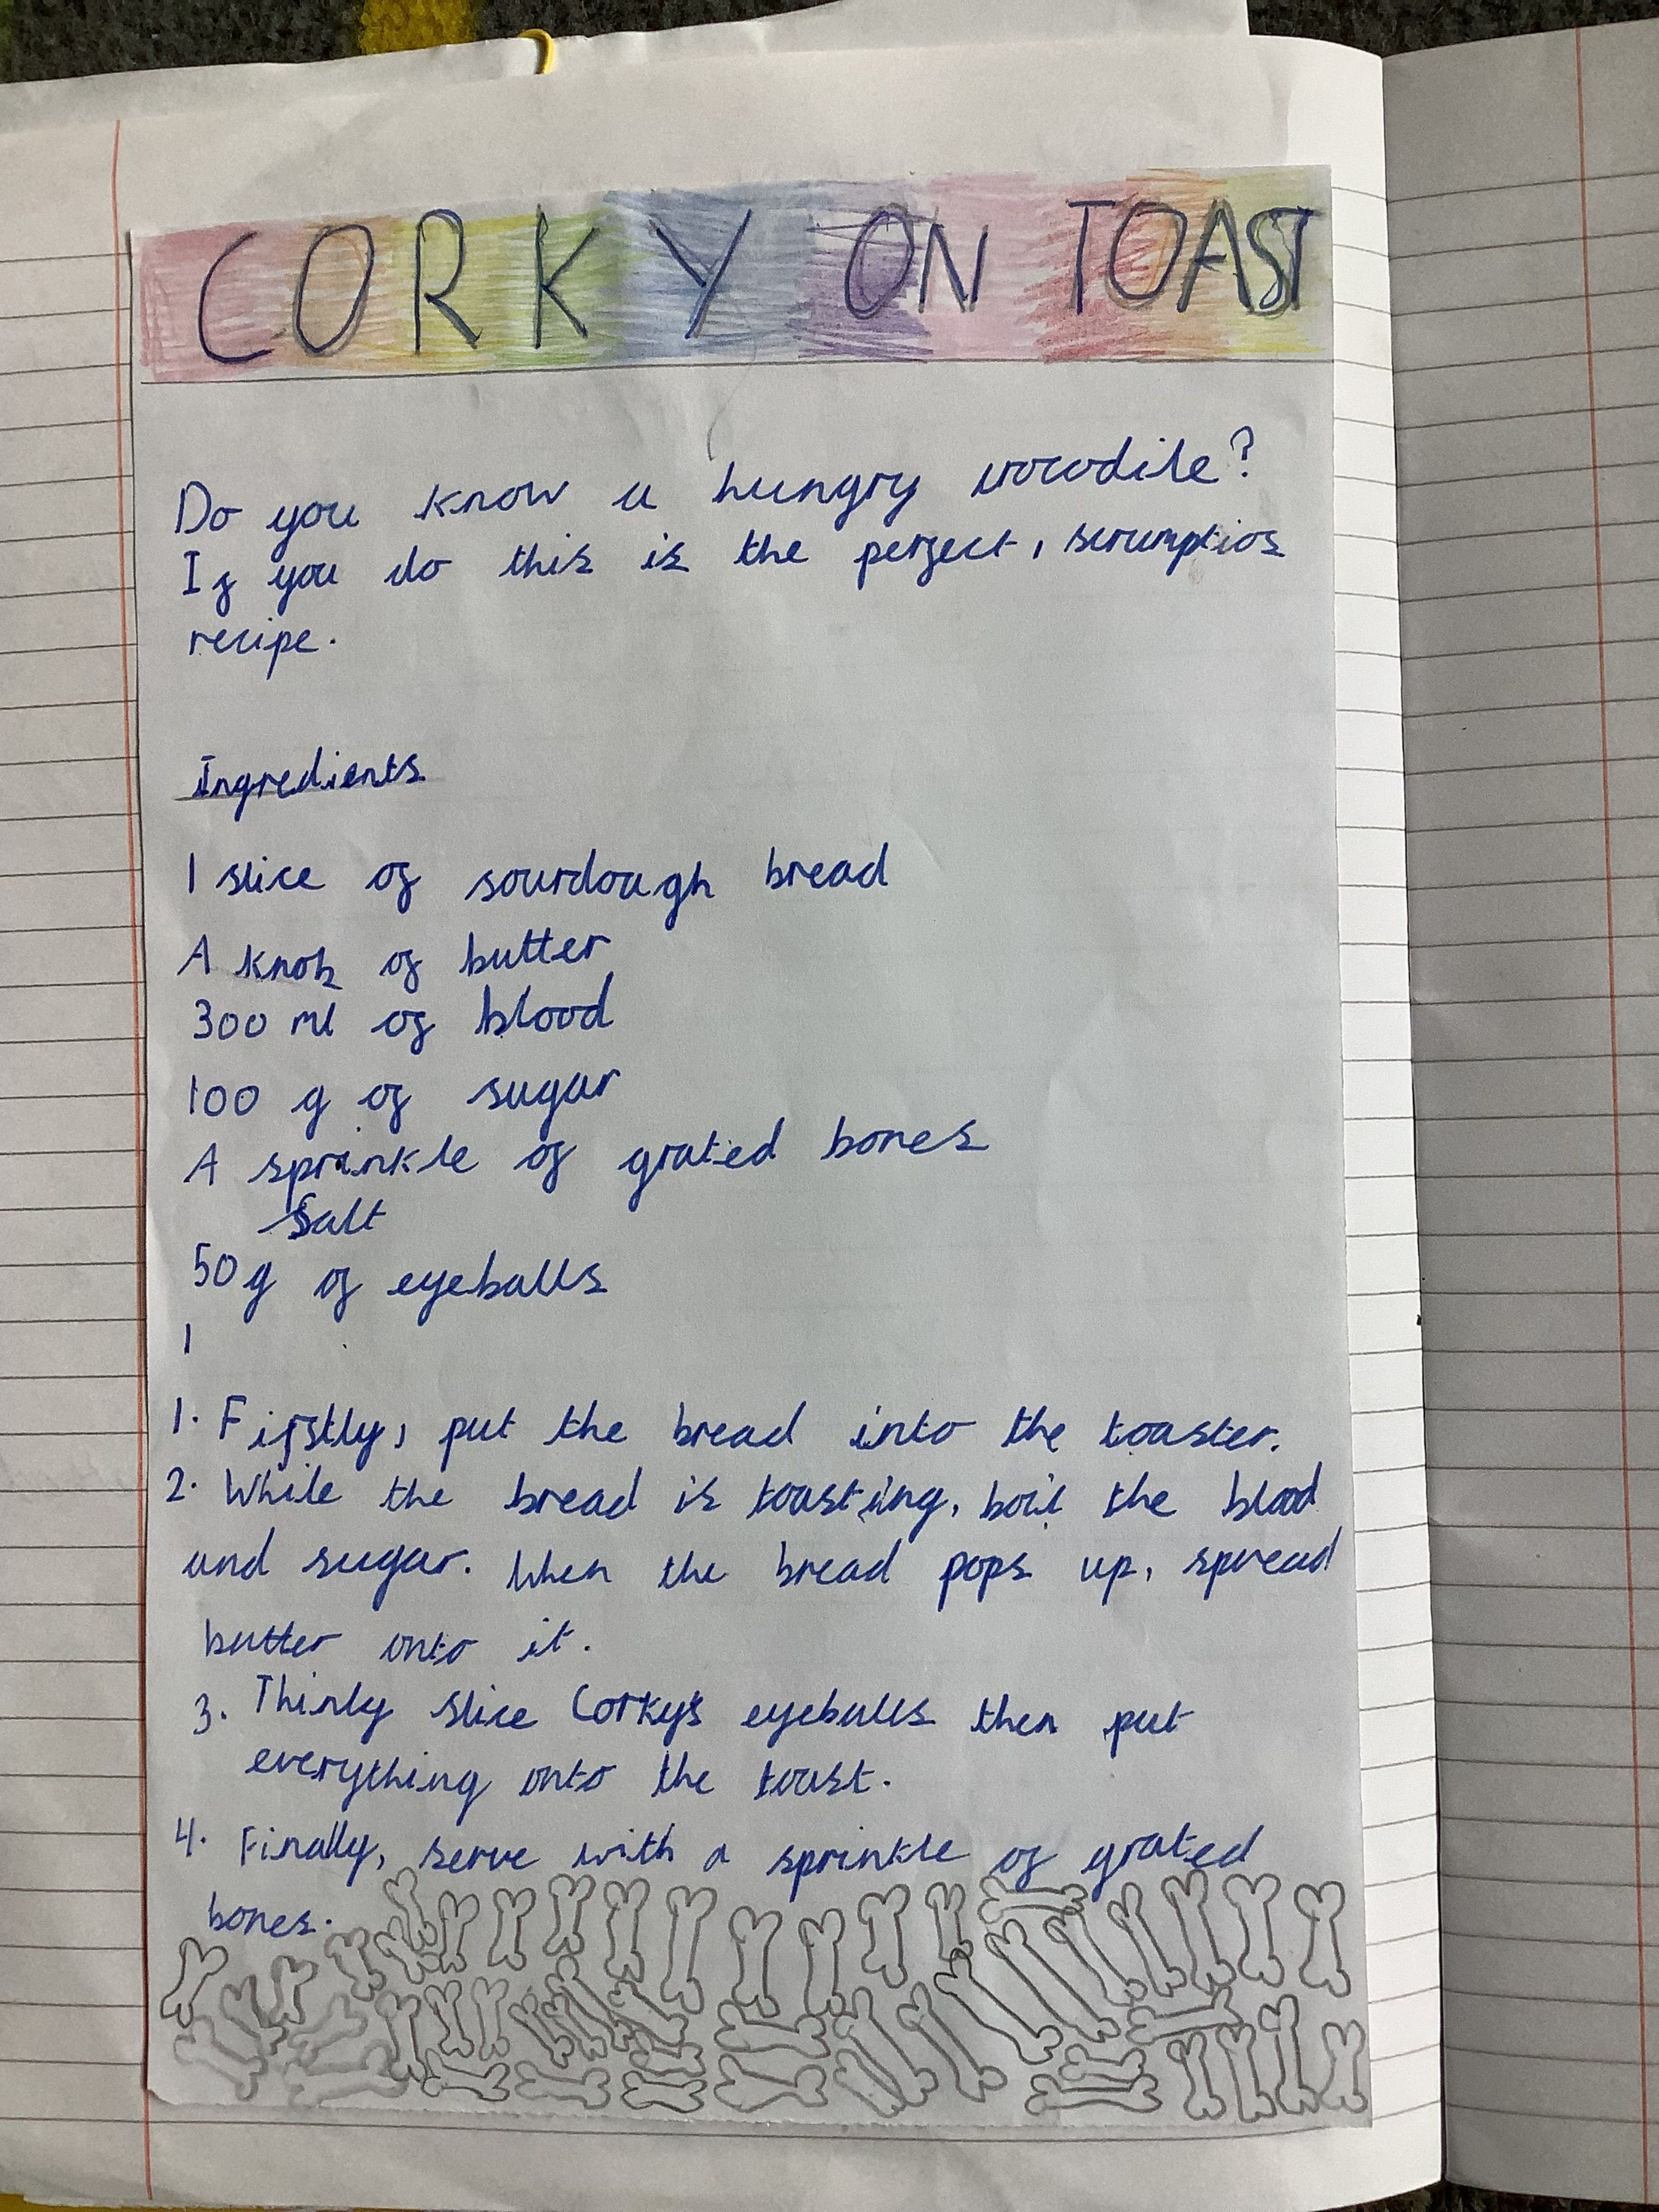 CORKY ON TOAST
Do you know a hungry crocodile?
If you do this is the perfect, scrumptios
recipe.
Ingredients
1 slice of sourdough bread
A knob of butter
300 ml of blood
100 g of sugar
A sprinkle of grated bones
Salt
50g of eyeballs
1
1. Firstly, put the bread into the toaster.
2. While the bread is toasting, boil the blood
and sugar. When the bread pops up, spread
butter onto it.
3. Thinly slice Corky's eyeballs then put
everything onto the toast.
4. Finally, serve with a sprinkle of grated
bones.